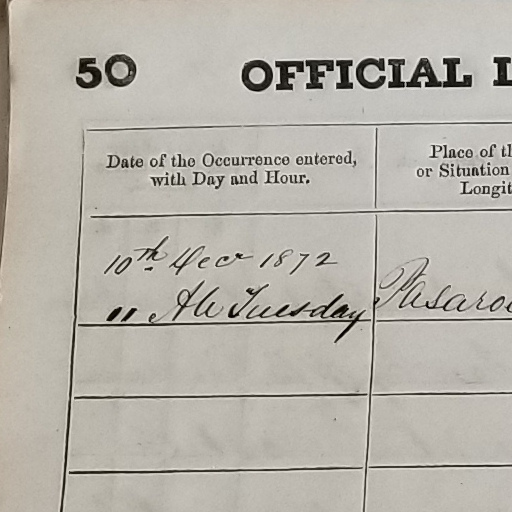 50 OFFICIAL L
Date of the Occurrence entered,
with Day and Hour.
Place of th
or Situation
Longit
10th Decr 1872
11 AM Tuesday
Pasaro